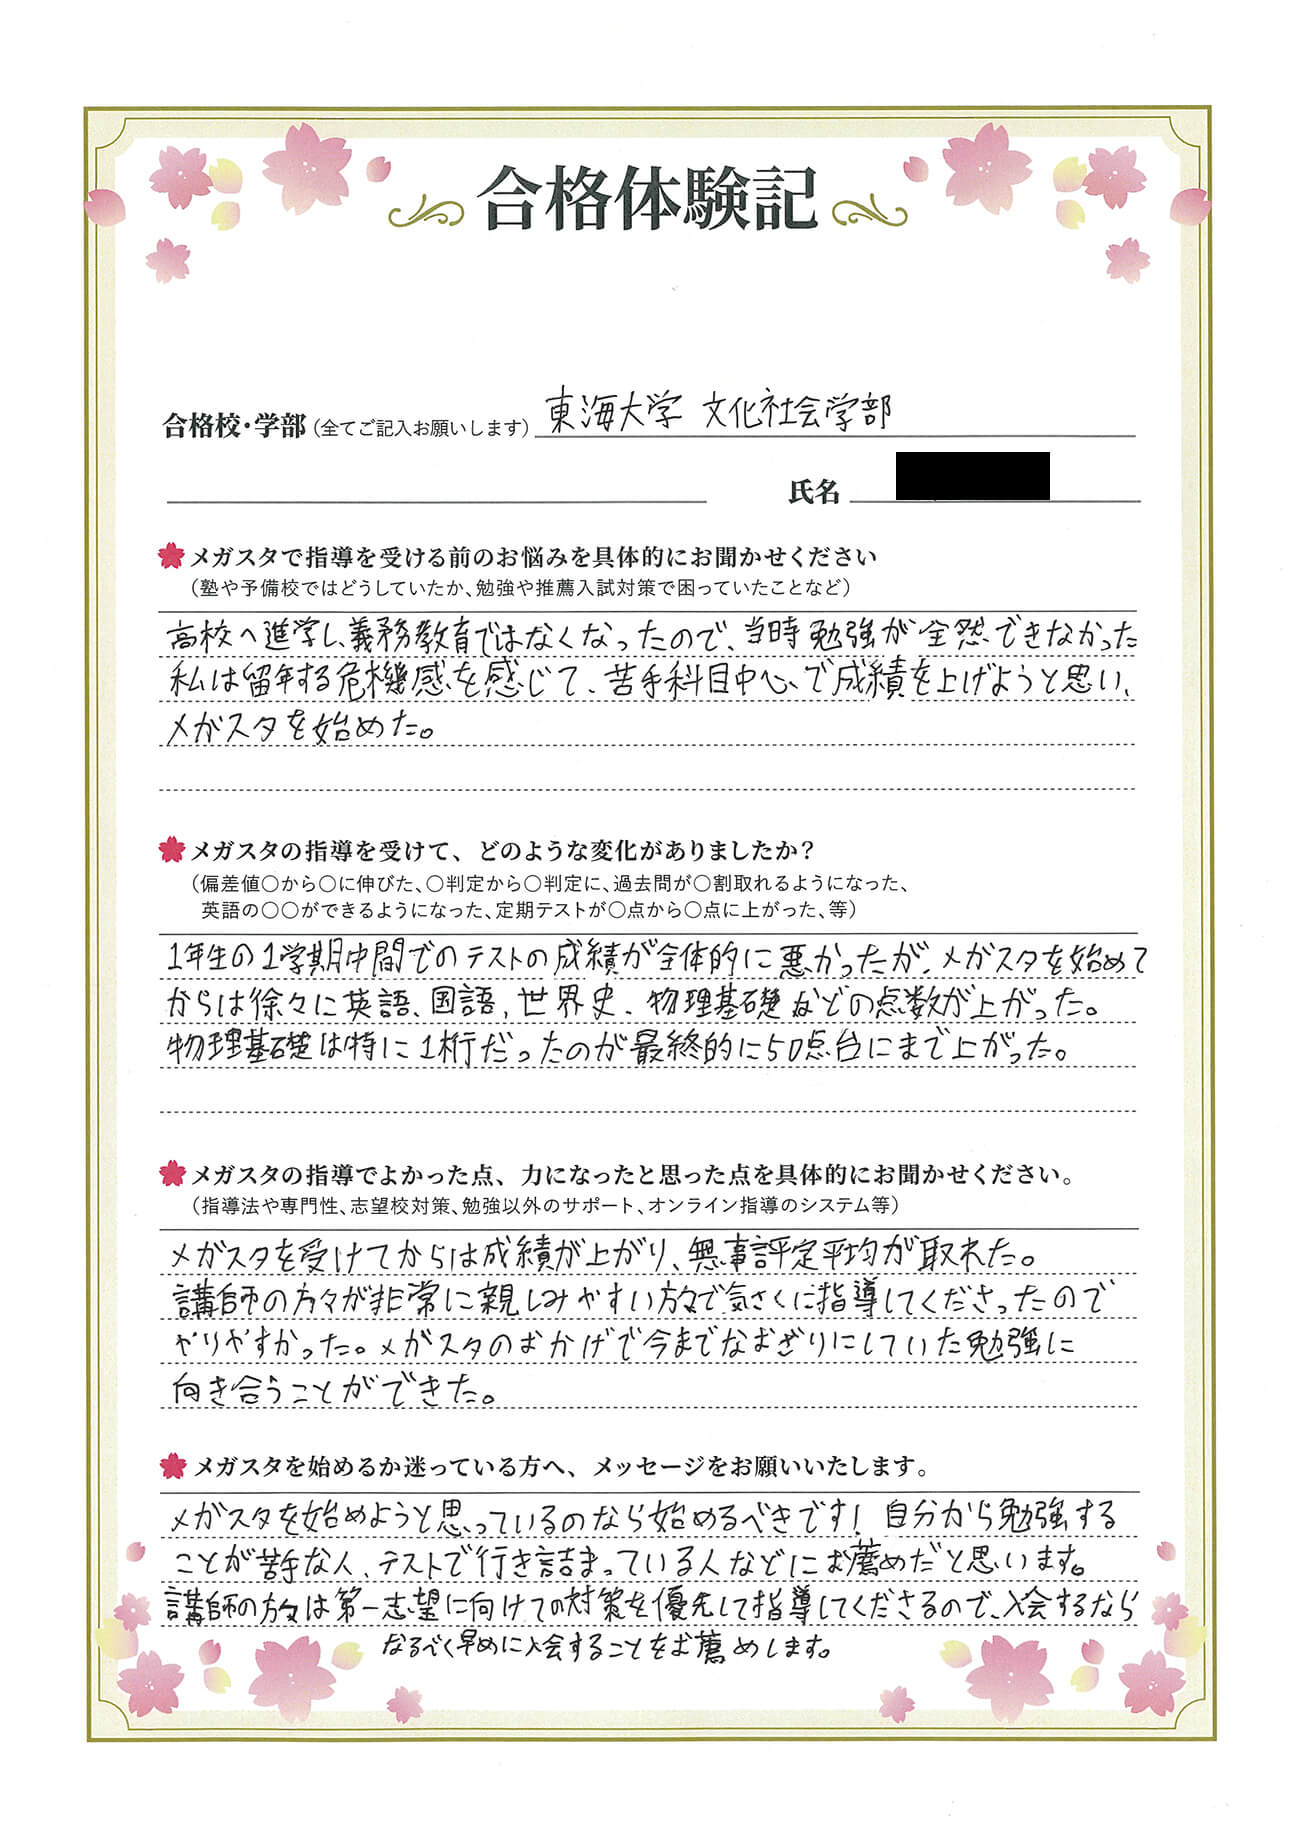 合格体験記
合格校・学部(全てご記入お願いします) 東海大学 文化社会学部
氏名
メガスタで指導を受ける前のお悩みを具体的にお聞かせください
(塾や予備校ではどうしていたか、勉強や推薦入試対策で困っていたことなど)
高校へ進学し、義務教育ではなくなったので、当時勉強が全然できなかった
私は留年する危機感を感じて、苦手科目中心で成績を上げようと思い、
メガスタを始めた。
メガスタの指導を受けて、どのような変化がありましたか?
(偏差値〇から〇に伸びた、〇判定から〇判定に、過去問が〇割取れるようになった、
英語の〇〇ができるようになった、定期テストが〇点から〇点に上がった、等)
1年生の1学期中間でのテストの成績が全体的に悪かったが、メガスタを始めて
からは徐々に英語、国語、世界史、物理基礎などの点数が上がった。
物理基礎は特に1桁だったのが最終的に50点台にまで上がった。
メガスタの指導でよかった点、力になったと思った点を具体的にお聞かせください。
(指導法や専門性、志望校対策、勉強以外のサポート、オンライン指導のシステム等)
メガスタを受けてからは成績が上がり、無事評定平均が取れた。
講師の方々が非常に親しみやすい方々で気さくに指導してくださったので
やりやすかった。メガスタのおかげで今までなおざりにしていた勉強に
向き合うことができた。
メガスタを始めるか迷っている方へ、メッセージをお願いいたします。
メガスタを始めようと思っているのなら始めるべきです!自分から勉強する
ことが苦手な人、テストで行き詰まっている人などにお薦めだと思います。
講師の方々は第一志望に向けての対策を優先して指導してくださるので、入会するなら
なるべく早めに入会することをお薦めします。